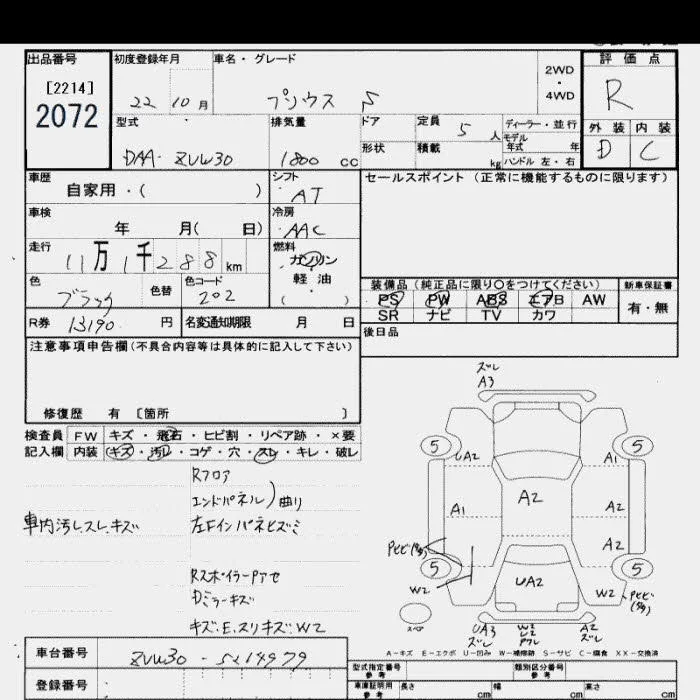 出品番号 初度登録年月 車名・グレード 2WD・4WD 評価点
[2214]
2072
22 10月 プリウス S R
型式 排気量 ドア 定員 5人 ディーラー・並行 外装 内装
モデル年式 年
DAA- ZVW30 1800 cc 形状 積載 kg ハンドル 左・右 D C
車歴 シフト セールスポイント(正常に機能するものに限ります)
自家用・( ) AT
車検 冷房
年 月( 日) AAC
走行 燃料
11万1千288km ガソリン
軽油
( )
色 色替 色コード 装備品(純正品に限り〇をつけてください) 新車保証書
ブラック 202 PS PW ABS エアB AW 有・無
SR ナビ TV カワ
R券 13190円 名変通知期限 月 日
後日品
注意事項申告欄(不具合内容等は具体的に記入して下さい)
修復歴 有 〔箇所 〕
検査員 FW キズ・飛石・ヒビ割・リペア跡・×要
記入欄 内装 キズ・汚レ・コゲ・穴・スレ・キレ・破レ
Rフロア
エンドパネル)曲リ
車内汚レ.スレ.キズ 左Fインパネヒズミ
RスポイラーPアセ
Dミラーキズ
キズ.E.スリキズ.W2
ズレ
A3
5 5
UA2 A1
A1 A2 A2
A2
5 5
W2 UA2 W2
スペア
UA3 ズレ W2 U2 A2 ズレ
A-キズ E-エクボ U-凹み W-補修跡 S-サビ C-腐食 XX-交換済
車台番号 ZVW30 - 5214979
登録番号
型式指定番号 参考 類別区分番号 参考
車庫証明用 参考 長さ cm 幅 cm 高さ cm